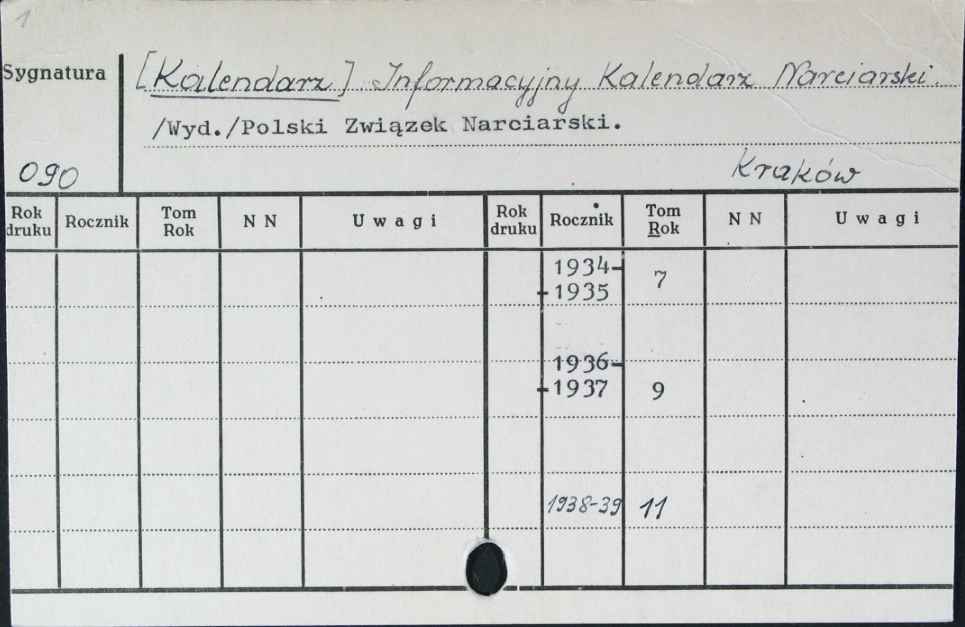 1
Sygnatura
[Kalendarz] Informacyjny Kalendarz Narciarski.
/Wyd./Polski Związek Narciarski.
090
Kraków
Rok druku Rocznik Tom Rok N N Uwagi Rok druku Rocznik Tom Rok N N Uwagi
1934-
-1935 7
1936-
-1937 9
1938-39 11